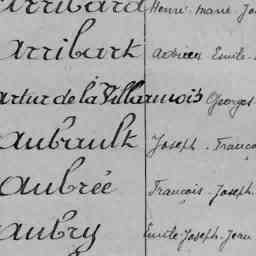 Arribard Henri Marie Jo
Arribart Adrien Emile
Artur de la Villarmois Georges
Aubrault Joseph - Franço
Aubrée François - Joseph
Aubry Emile - Joseph - Jean